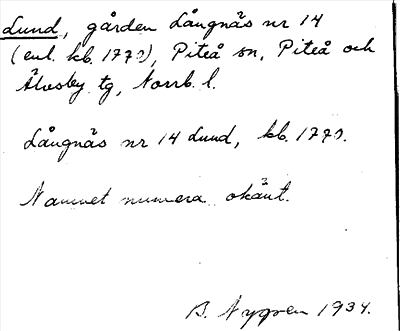 Lund, gården Långnäs nr 14
(enl. kb. 1770), Piteå sn, Piteå och
Älvsby tg, Norrb. l.
Långnäs nr 14 Lund, kb. 1770.
Namnet numera okänt.
B. Nygren 1934.